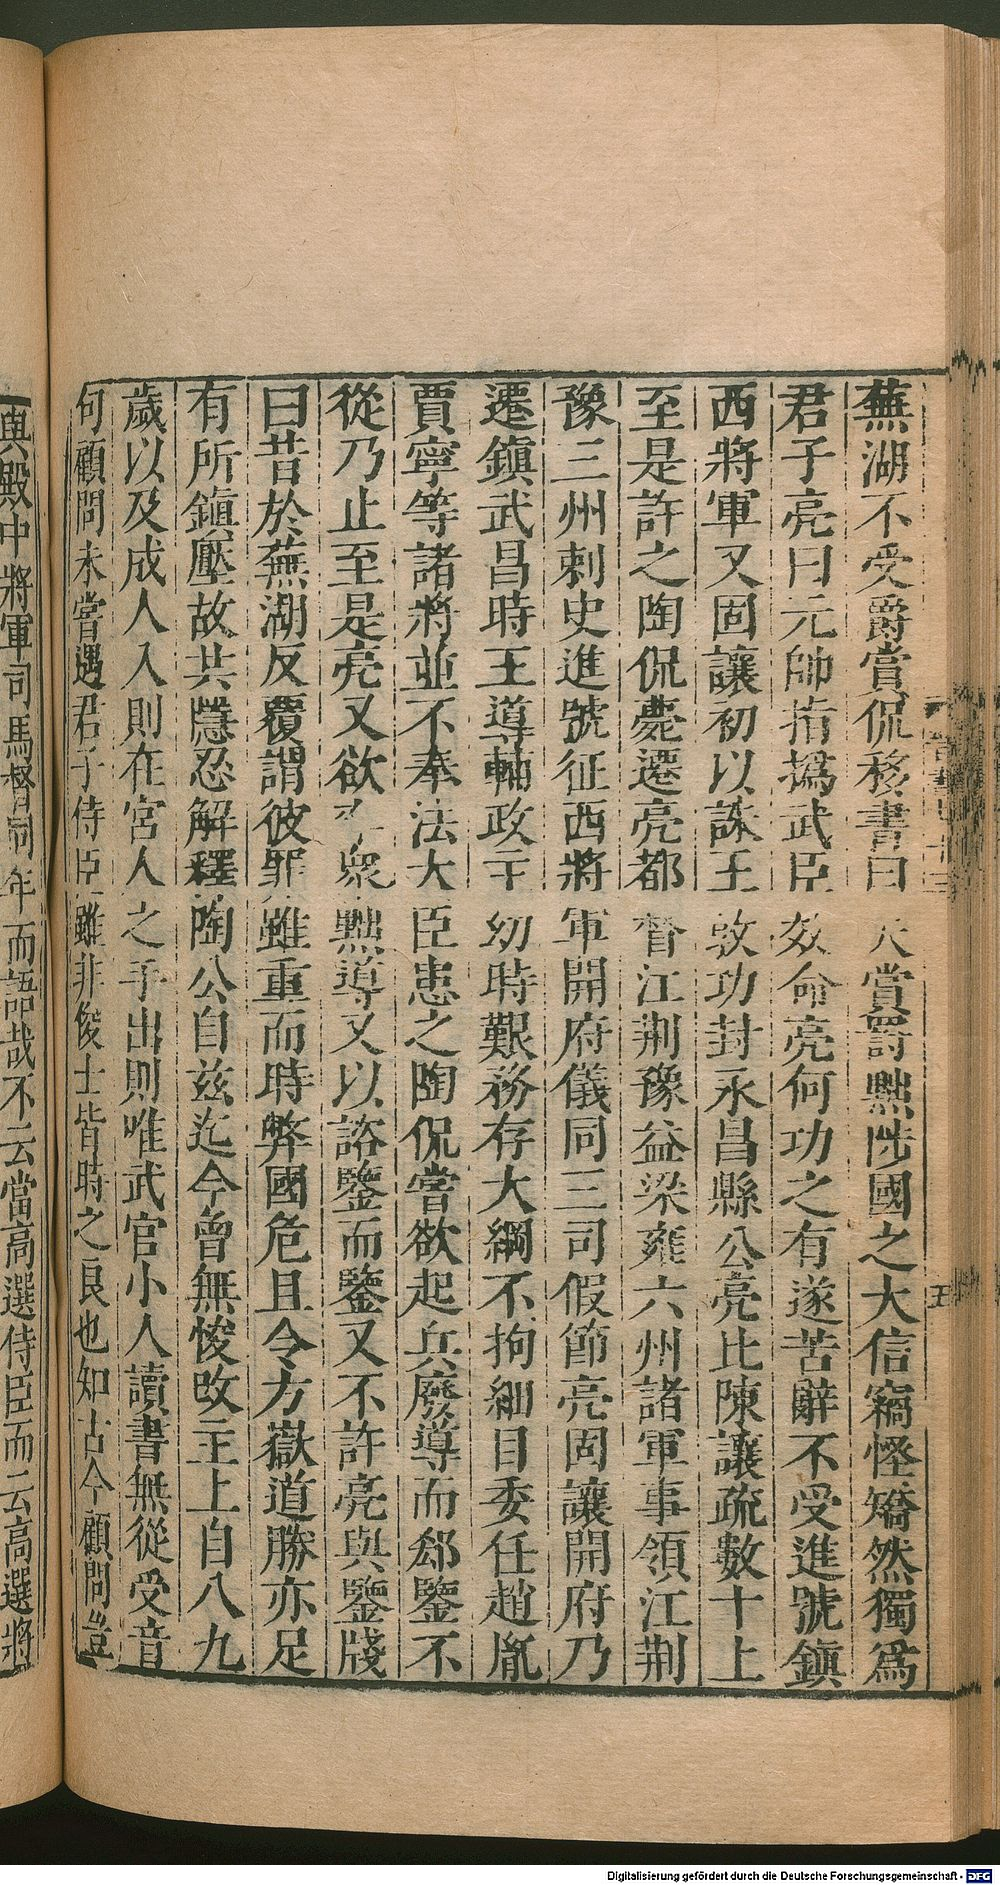 蕪湖不受爵賞侃移書曰夫賞罰黜陟國之大信竊怪矯然獨爲
君子亮曰元帥指撝武臣效命亮何功之有遂苦辭不受進號鎭
西將軍又固讓初以誅王敦功封永昌縣公亮比陳讓疏數十上
至是許之陶侃薨遷亮都督江荆豫益梁雍六州諸軍事領江荆
豫三州刺史進號征西將軍開府儀同三司假節亮固讓開府乃
遷鎭武昌時王導輔政主幼時艱務存大綱不拘細目委任趙胤
賈寧等諸將並不奉法大臣患之陶侃嘗欲起兵廢導而郄鑒不
從乃止至是亮又欲率衆黜導又以諮鑒而鑒又不許亮與鑒牋
曰昔於蕪湖反覆謂彼罪雖重而時弊國危且令方嶽道勝亦足
有所鎭壓故共隱忍解釋陶公自茲迄今曾無悛改主上自八九
歲以及成人入則在宮人之手出則唯武官小人讀書無從受音
句顧問未嘗遇君子侍臣雖非俊士皆時之良也知古今顧問豈
與殿中將軍司馬督同年而語哉不云當高選侍臣而云高選將
Digitalisierung gefördert durch die Deutsche Forschungsgemeinschaft - DFG